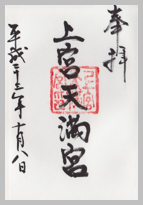 奉拝
上宮天満宮
平成二十三年十月八日